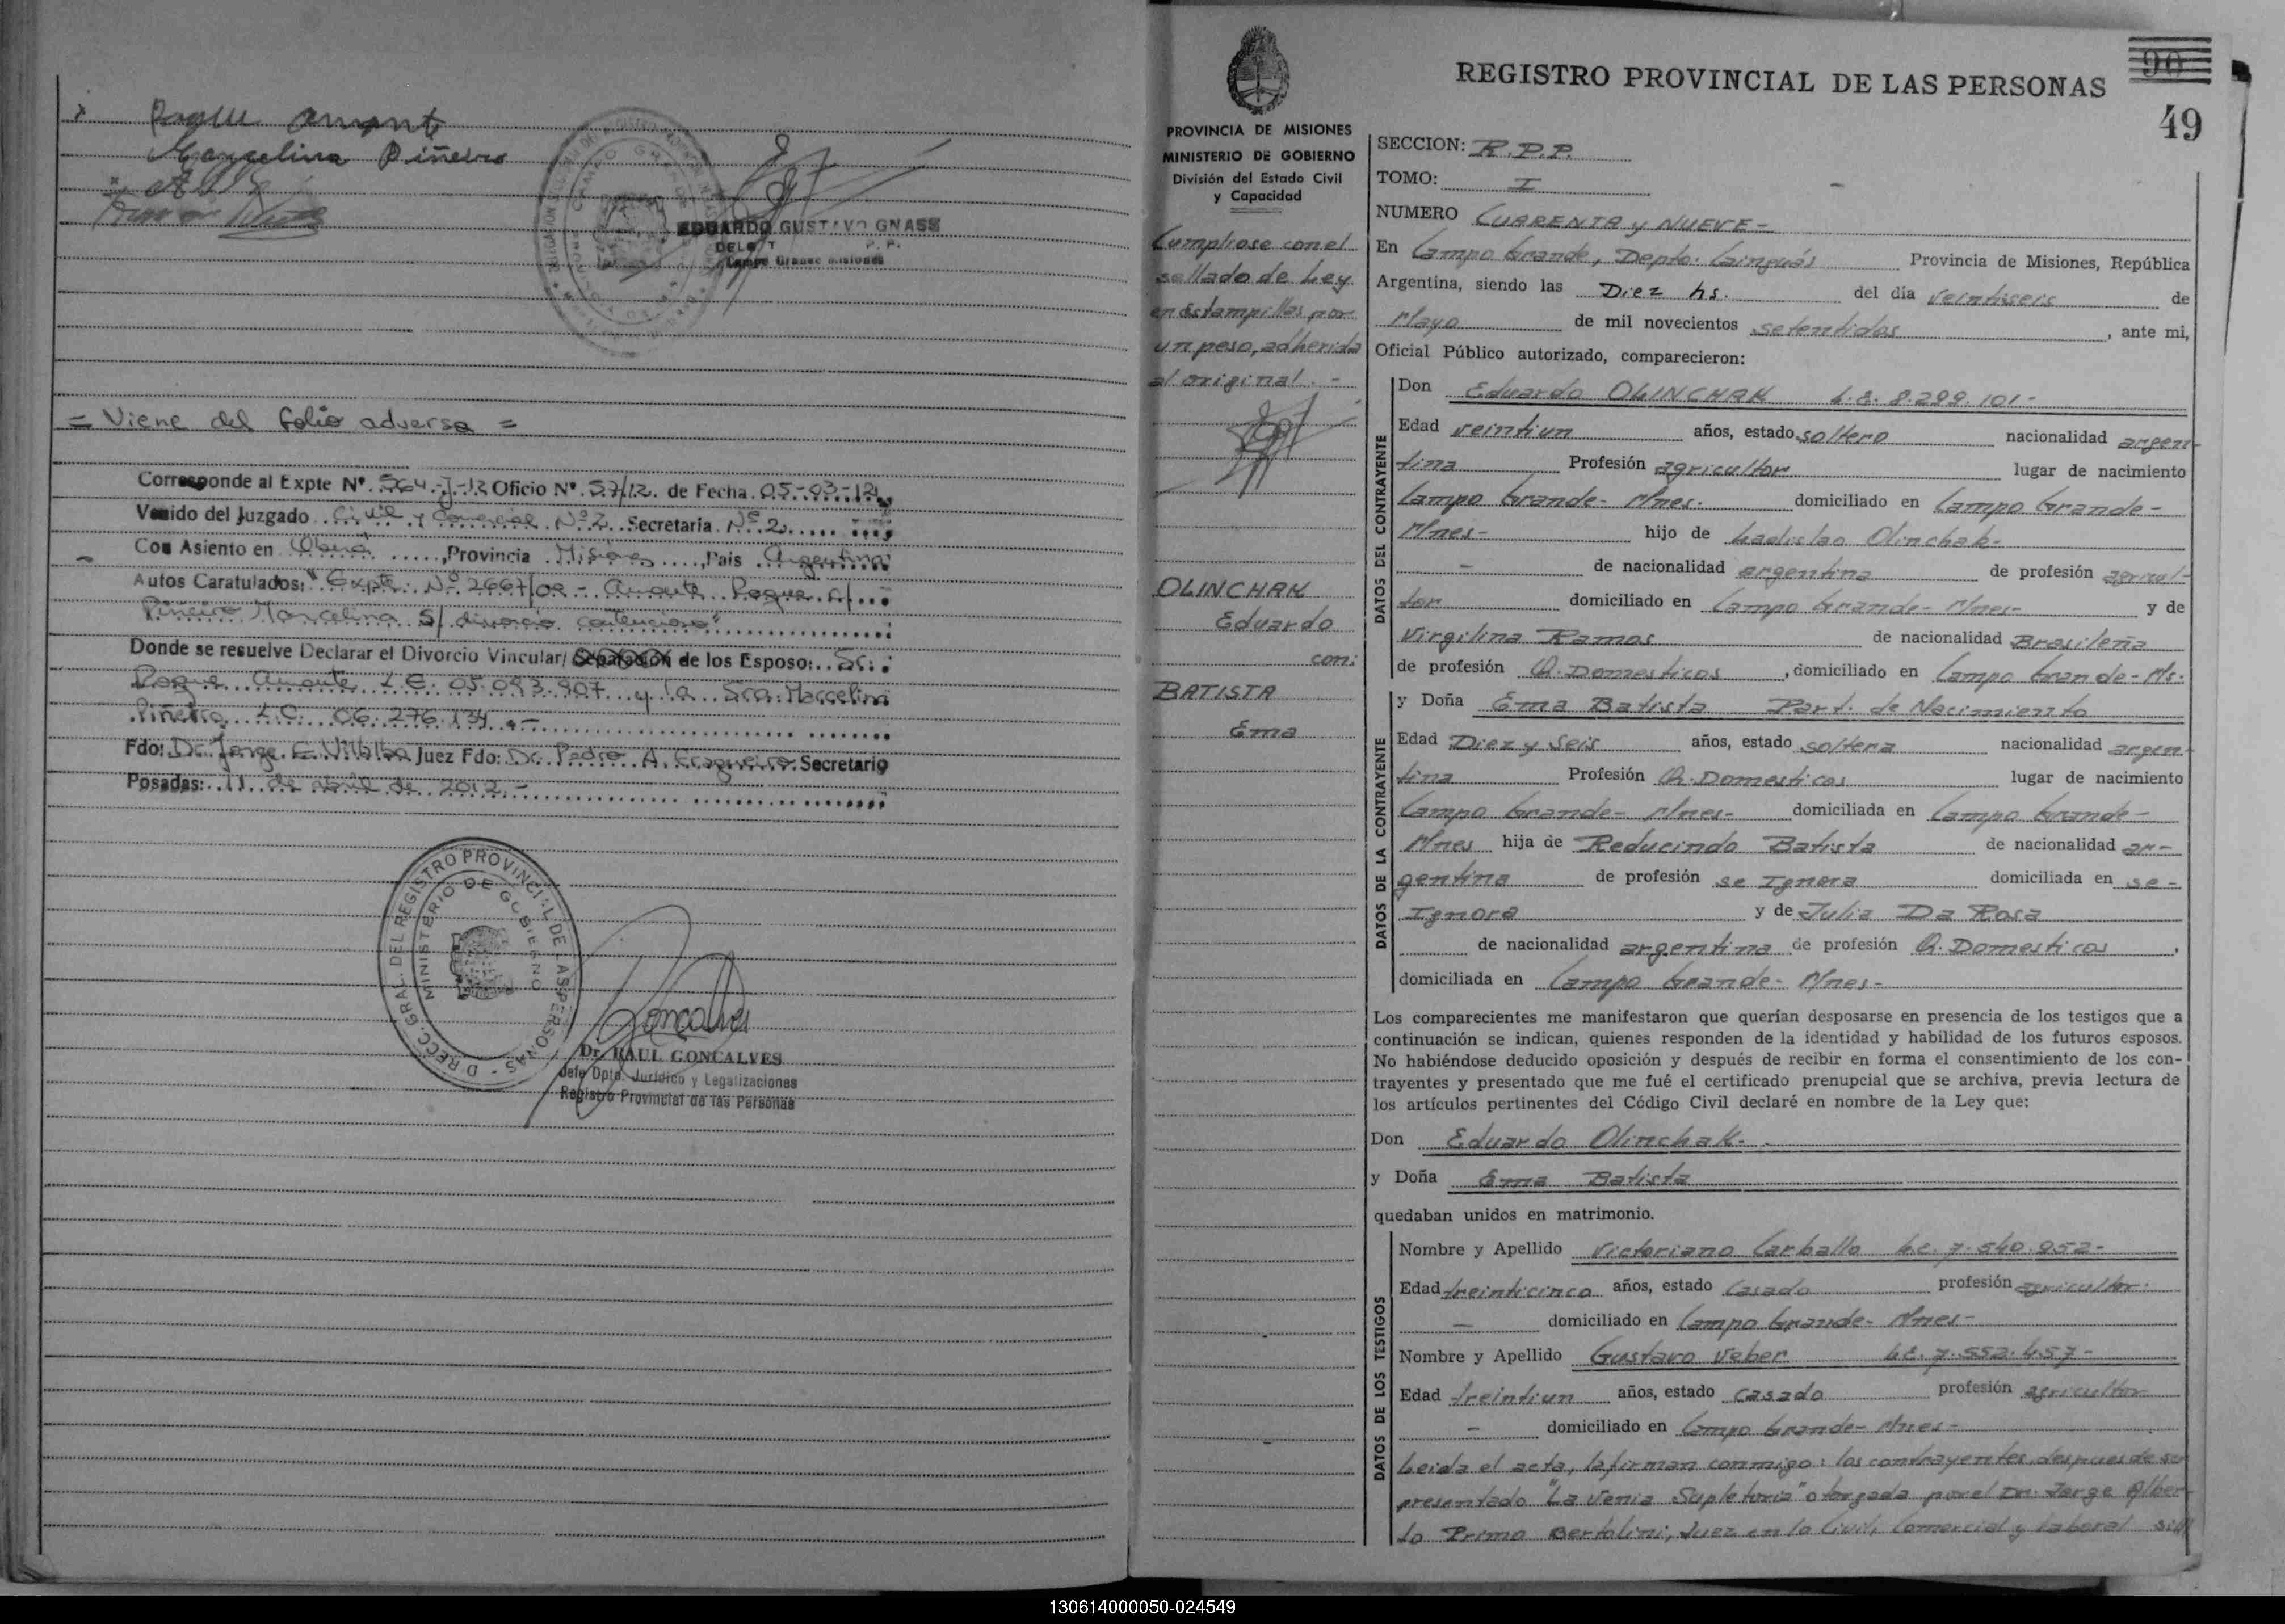 Roque Amante
Marcelina Piñeiro
EDUARDO GUSTAVO GNASS
Campo Grande Misiones
= Viene del folio adverso =
Corresponde al Expte Nº. 564-J-12 Oficio Nº. 57/12. de Fecha. 05-03-12,
Venido del Juzgado Civil y Comercial Nº2. Secretaría Nº 2
Con Asiento en Oberá, Provincia Misiones, País Argentina
Autos Caratulados: "Expte. Nº 2667/09 - Amante Roque c/
Piñeiro Marcelina S/ divorcio contencioso"
Donde se resuelve Declarar el Divorcio Vincular/ Separación de los Esposo: Sr.:
Roque Amante L.E. 05.043.907 y la Sra. Marcelina
Piñeiro L.C. 06.276.134.-
Fdo: Dr. Jorge E. Villalba Juez Fdo: Dr. Pedro A. Secretario
Posadas: 11 de abril de 2012.-
DIRECC. GRAL. DEL REGISTRO PROVINCIAL DE LAS PERSONAS -
MINISTERIO DE GOBIERNO
Dr. RAUL GONCALVES
Jefe Dpto. Jurídico y Legalizaciones
Registro Provincial de las Personas
90
REGISTRO PROVINCIAL DE LAS PERSONAS
49
PROVINCIA DE MISIONES
MINISTERIO DE GOBIERNO
División del Estado Civil
y Capacidad
Cumpliose con el
sellado de Ley
en estampillas por
un peso, adherida
al original.-
OLINCHAK
Eduardo
con:
BATISTA
Ema
SECCION: R.P.P.
TOMO: I
NUMERO CUARENTA y NUEVE-
En Campo Grande, Depto. Cainguás Provincia de Misiones, República
Argentina, siendo las Diez hs. del día veintiseis de
Mayo de mil novecientos setentidos, ante mi,
Oficial Público autorizado, comparecieron:
DATOS DEL CONTRAYENTE
Don Eduardo OLINCHAK L.E. 8.299.101-
Edad veintiun años, estado soltero nacionalidad argen-
tina Profesión agricultor lugar de nacimiento
Campo Grande- Mnes. domiciliado en Campo Grande-
Mnes- hijo de Ladislao Olinchak-
- de nacionalidad argentina de profesión agricul-
tor domiciliado en Campo Grande- Mnes- y de
Virgilina Ramos de nacionalidad Brasileña
de profesión Q. Domesticos, domiciliado en Campo Grande- Ms.
DATOS DE LA CONTRAYENTE
y Doña Ema Batista Part. de Nacimiento
Edad Diez y Seis años, estado soltera nacionalidad argen-
tina Profesión Q. Domesticos lugar de nacimiento
Campo Grande- Mnes- domiciliada en Campo Grande-
Mnes hija de Reducindo Batista de nacionalidad ar-
gentina de profesión se Ignora domiciliada en se-
Ignora y de Julia Da Rosa
de nacionalidad argentina de profesión Q. Domesticos,
domiciliada en Campo Grande- Mnes-
Los comparecientes me manifestaron que querían desposarse en presencia de los testigos que a
continuación se indican, quienes responden de la identidad y habilidad de los futuros esposos.
No habiéndose deducido oposición y después de recibir en forma el consentimiento de los con-
trayentes y presentado que me fué el certificado prenupcial que se archiva, previa lectura de
los artículos pertinentes del Código Civil declaré en nombre de la Ley que:
Don Eduardo Olinchak-
y Doña Ema Batista
quedaban unidos en matrimonio.
DATOS DE LOS TESTIGOS
Nombre y Apellido Victoriano Carballo L.E. 7.540.952-
Edad treinticinco años, estado Casado profesión agricultor.
- domiciliado en Campo Grande- Mnes-
Nombre y Apellido Gustavo Veber L.E. 7.552.457-
Edad treintiun años, estado casado profesión agricultor
- domiciliado en Campo Grande- Mnes-
Leida el acta, la firman conmigo: los contrayentes, despues de ser
presentado "La Venia Supletoria" otorgada por el Dr. Jorge Alber-
to Primo Bertolini, Juez en lo Civil, Comercial y Laboral
130614000050-024549